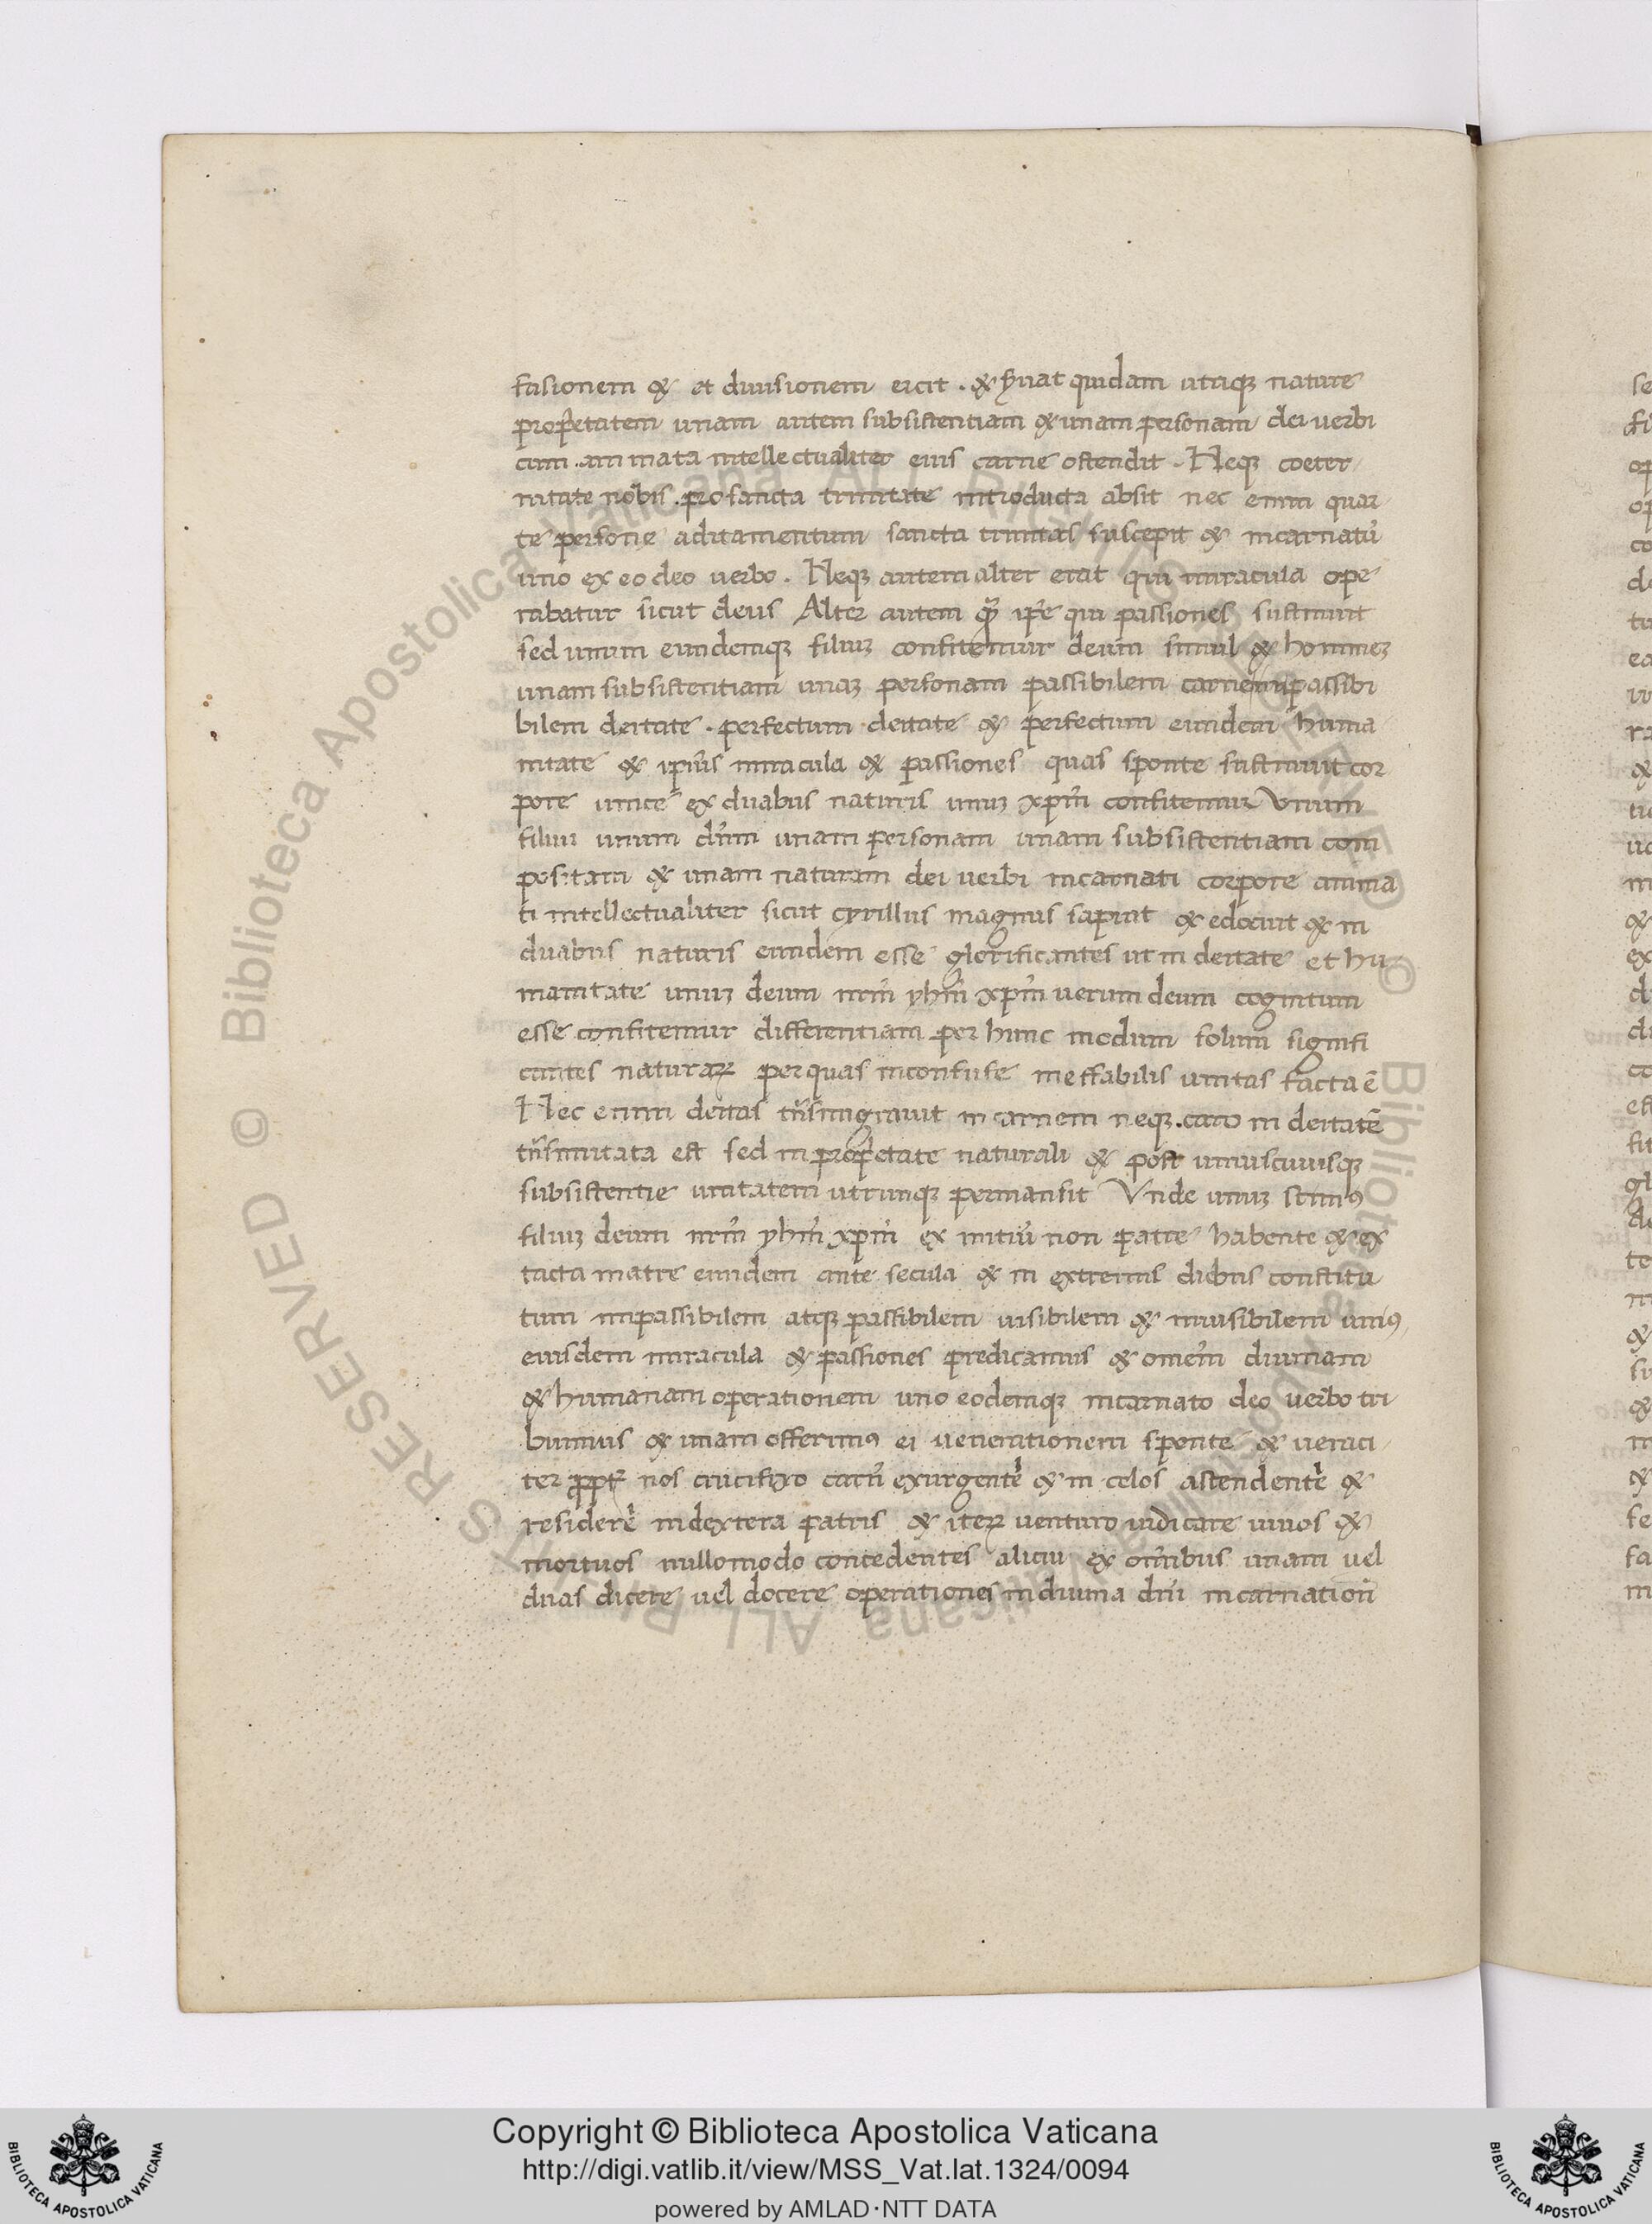 fusionem & et diuisionem eicit . & s̄uat quidam utriqꝫ nature
prop̄etatem unam autem subsistentiam & unam personam dei uerbi
cum animata intellectualiter eius carne ostendit . Neqꝫ coeter
nitate nobis pro sancta trinitate introducta absit nec enim quar
te persone aditamentum sancta trinitas suscepit & incarnatū
uno ex eo deo uerbo . Neqꝫ autem alter erat qui miracula ope
rabatur sicut deus Alter autem ip̄e qui passiones sustinuit
sed unum eundemqꝫ filiuꝫ confitemur deum simul & homineꝫ
unam subsistentiam unaꝫ personam passibilem carnem ipassibi
bilem deitate . perfectum deitate & perfectum eundem huma
nitate & ipiūs miracula & passiones quas sponte sustinuit cor
pore unice ex duabus naturis unuꝫ xpm̄ confitemur Vnum
filiuꝫ unum dn̄m unam personam unam subsistentiam com
positam & unam naturam dei uerbi incarnati corpore anima
ti intellectualiter sicut cyrillus magnus sapuit & edocuit & in
duabus naturis eundem esse glorificantes ut in deitate et hu
manitate unuꝫ deum nrm̄ yhm̄ xpm̄ uerum deum cognitum
esse confitemur differentiam per hunc modum solum signifi
cantes naturaꝝ per quas inconfuse ineffabilis unitas facta ē
Nec enim deitas tn̄smigrauit in carnem neqꝫ . caro in deitatē
tn̄smutata est sed in prop̄etate naturali & post uniuscuiusqꝫ
subsistentie unitatem utrunqꝫ permansit Vnde unuꝫ scimꝰ
filiuꝫ deum nrm̄ yhm̄ xpm̄ ex initiū non patre habente & ex
tacta matre eundem ante secula & in extremis diebus constitu
tum impassibilem atqꝫ passibilem uisibilem & inuisibilem uniꝰ
eiusdem miracula & passiones predicamus & omem̄ diuinam
& humanam operationem uno eodemqꝫ incarnato deo uerbo tri
buimus & unam offerimꝰ ei uenerationem sponte & ueraci
ter propt̄ nos crucifixo carn̄ exurgentē & in celos ascendentē &
residerē in dextera patris & iteꝝ venturo iudicare uiuos &
mortuos nullomodo concedentes alicui ex omn̄ibus unam uel
duas dicere uel docere operationes in diuina dn̄i incarnation̄
Copyright © Biblioteca Apostolica Vaticana
http://digi.vatlib.it/view/MSS_Vat.lat.1324/0094
powered by AMLAD·NTT DATA
BIBLIOTECA APOSTOLICA VATICANA
BIBLIOTECA APOSTOLICA VATICANA
© Biblioteca Apostolica Vaticana ALL RIGHTS RESERVED
© Biblioteca Apostolica Vaticana ALL RIGHTS RESERVED